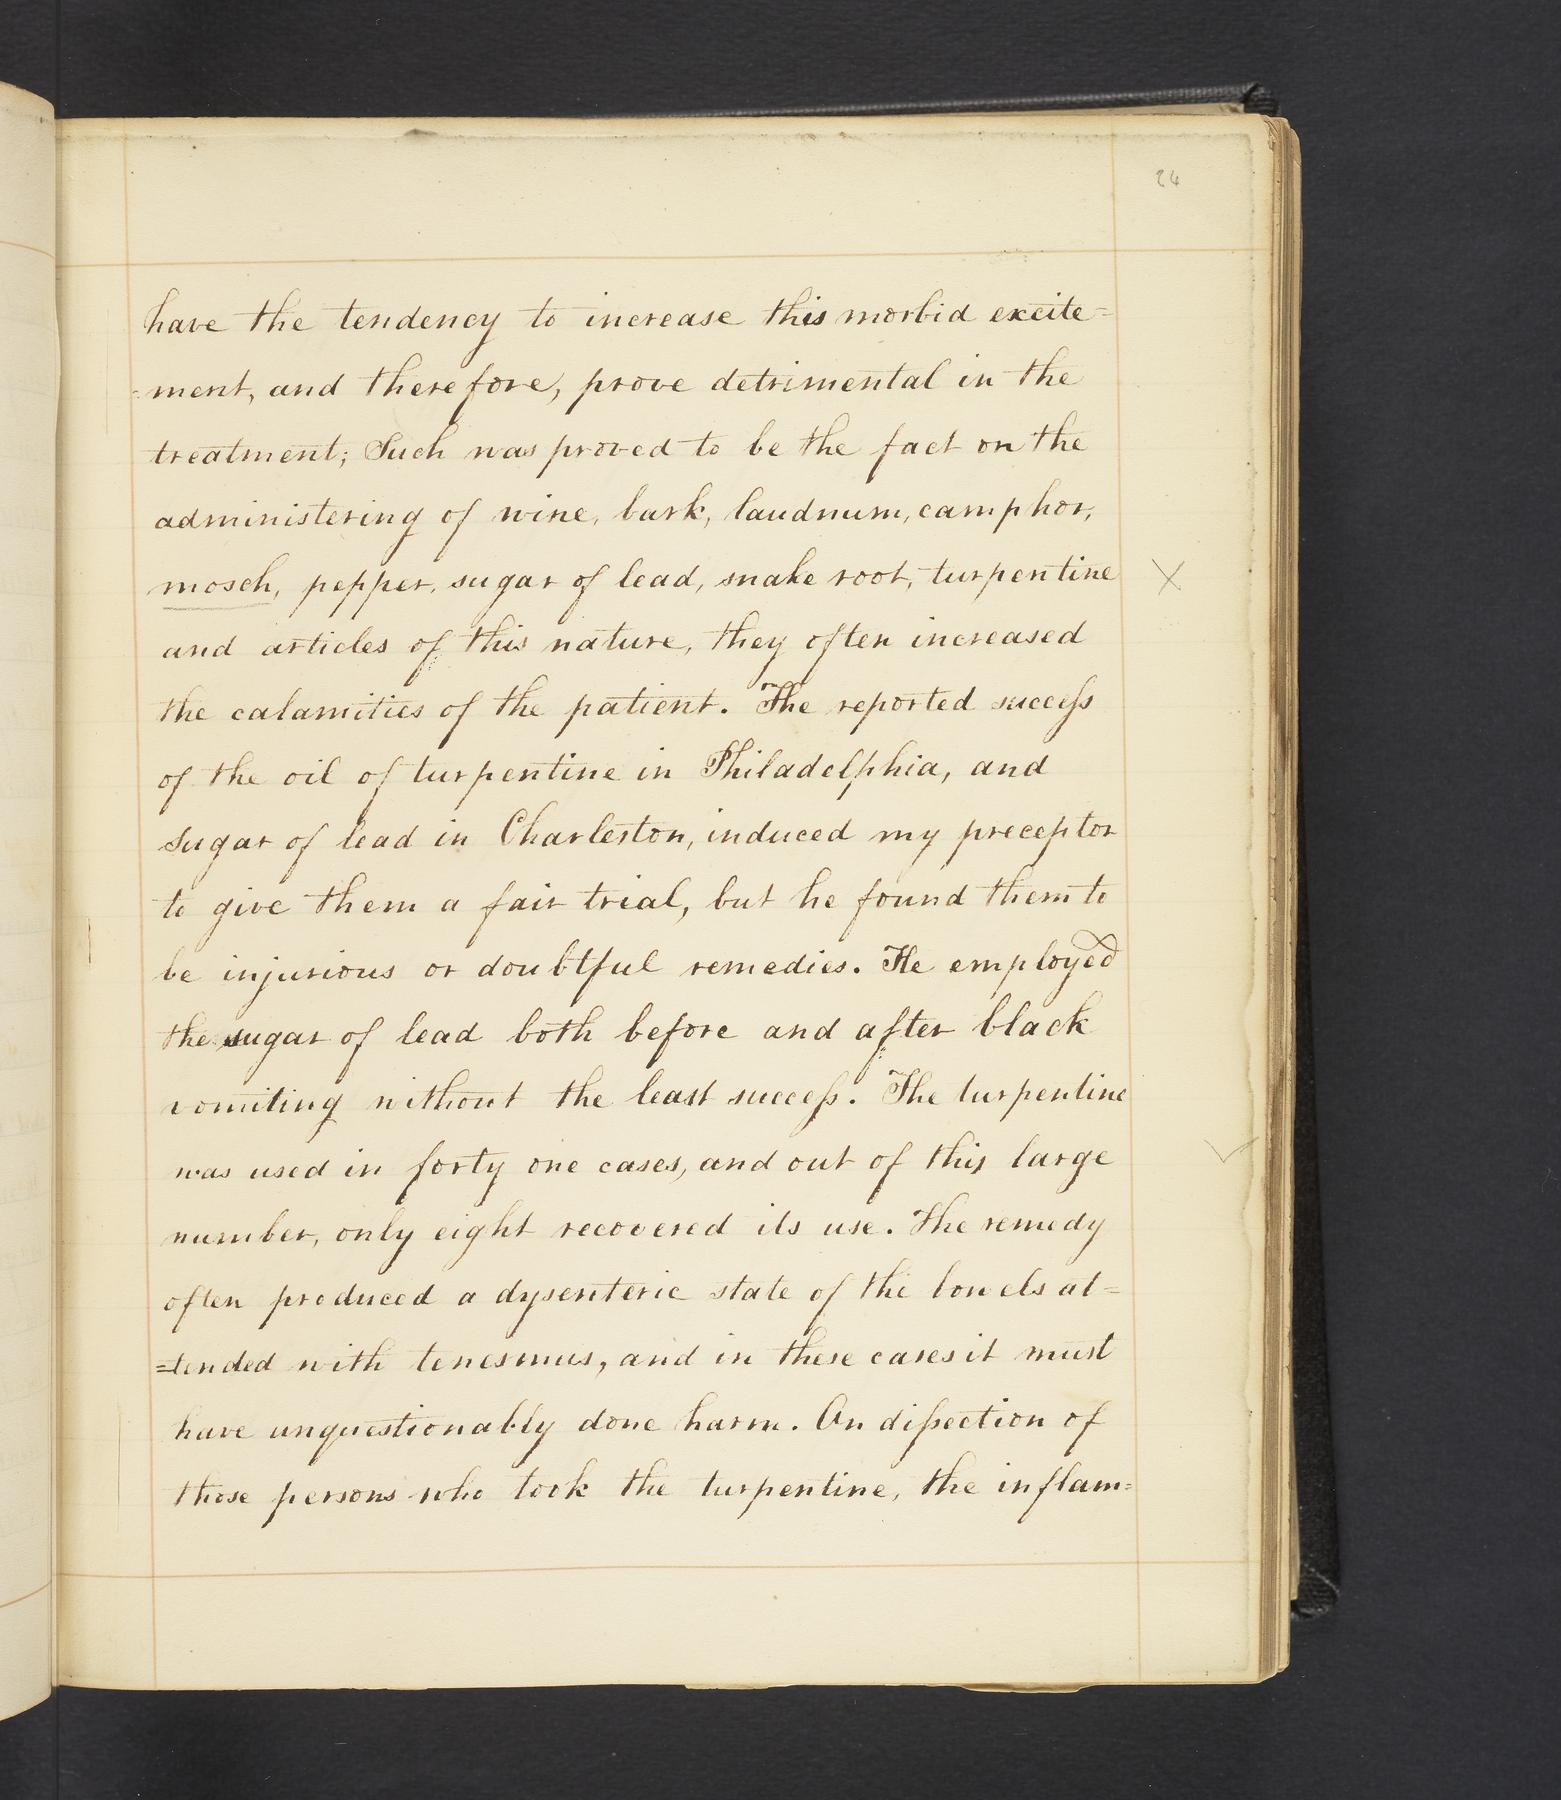 24
have the tendency to increase this morbid excite=
=ment, and therefore, prove detrimental in the
treatment; Such was proved to be the fact on the
administering of wine, bark, laudnum, camphor,
mosch, pepper, sugar of lead, snake root, turpentine
and articles of this nature, they often increased
the calamities of the patient. The reported succeſs
of the oil of turpentine in Philadelphia, and
sugar of lead in Charleston, induced my preceptor
to give them a fair trial, but he found them to
be injurious or doubtful remedies. He employed
the sugar of lead both before and after black
vomiting without the least succeſs. The turpentine
was used in forty one cases, and out of this large
number, only eight recovered its use. The remedy
often produced a dysenteric state of the bowels at=
=tended with tenesmus, and in these cases it must
have unquestionably done harm. On diſsection of
those persons who took the turpentine, the inflam=